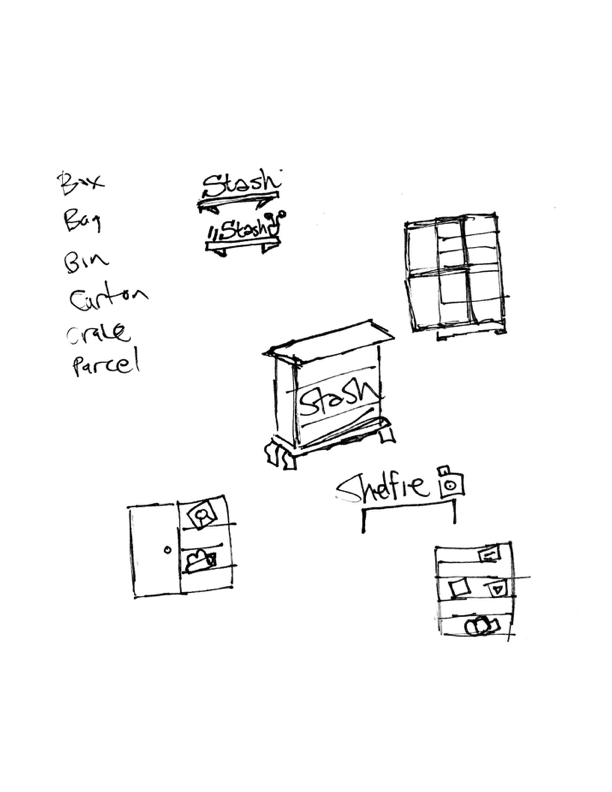 Box
Bag
Bin
Carton
Crate
Parcel
Stash
Stash
Stash
Shelfie